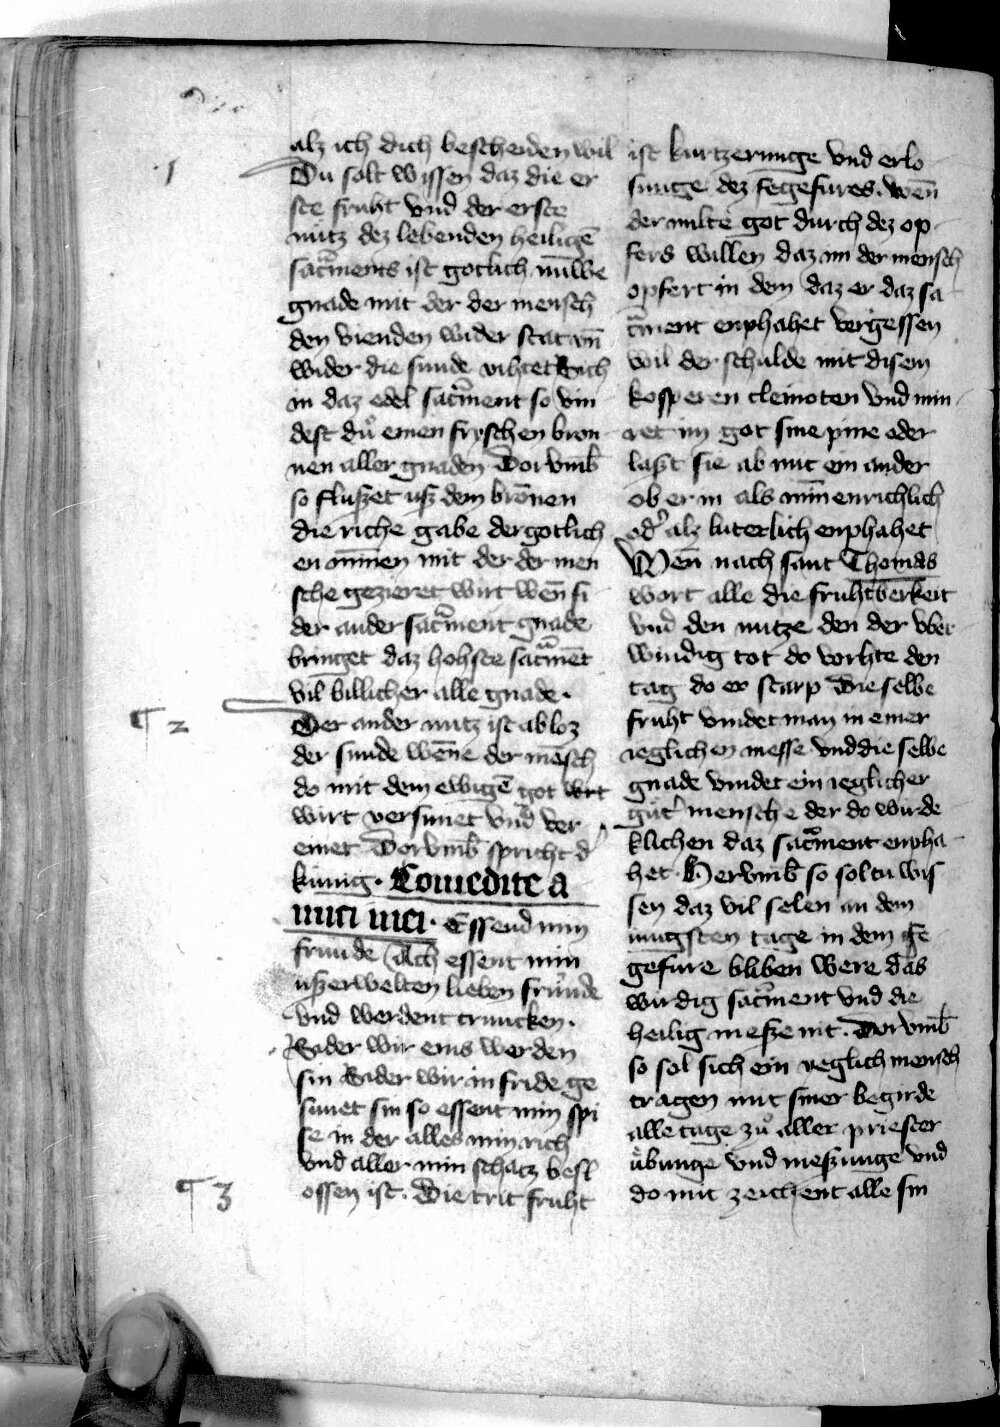 alz ich dich bescheiden wil
1
Du solt wissen daz die er
ste fruht vnd der erste
nutz dez lebenden heiligē
sacͬments ist gotlich nuwe
gnade mit der der mensch
den vienden wider stat vn̄
wider die sunde vihtet Sich
in daz edel sacͬment so vin
dest du einen fryschen bron
nen aller gnaden Dorvmb̄
so flußet uß dem bronen
die riche gabe der gotlich
en minnen mit der der men
sche gezieret wirt wen̄ si
der ander sacͬment gnade
bringet daz hohste sacͬmēt
vil billicher alle gnade.
¶ 2
Der ander nutz ist abloz
der sunde wēne der mēsch
do mit dem ewigē got
wirt versunet vnd ver
einet Dorvmb̄ spricht dͬ
kunig. Comedite a
mici mei. Essend min
frunde Ach essent min
ußerwelten lieben frunde
vnd werdent truncken.
Sider wir eins werden
sin Sider wir in fride ge
sunet sin so essent min spi
se in der alles min rich
vnd aller min schatz besl
ossen ist. Die trit fruht
¶ 3
ist kurtzerunge vnd erlo
sunge dez fegefures. wen̄
der milte got durch dez op
fers willen daz im der mensch
opfert in dem daz er daz sa
cͬment enphahet vergessen
wil der schulde mit disem
kosperen cleinoten vnd min
ret im got sine pine oder
laßt sie ab mit ein ander
ob er in als minnenrichlich
odͬ alz luterlich enphahet
Wen̄ nach sant Thomas
wort alle die fruhtberkeit
vnd den nutze den der vber
windig tot do vorhte den
tag do er starp Die selbe
fruht vindet man in einer
ieglichen messe vnd die selbe
gnade vindet ein ieglicher
gutͬ mensche der do wirde
klichen daz sacͬment enpha
het Hervmb̄ so soltu wis
sen daz vil selen an dem
iungsten tage in dem fe
gefure bliben were das
wirdig sacͬment vnd die
heilig meße nit. Dorvmb̄
so sol sich ein ieglich mensch
tragen mit siner begirde
alle tage zu aller priester
übunge vnd meßunge vnd
do mit zeichent alle sin